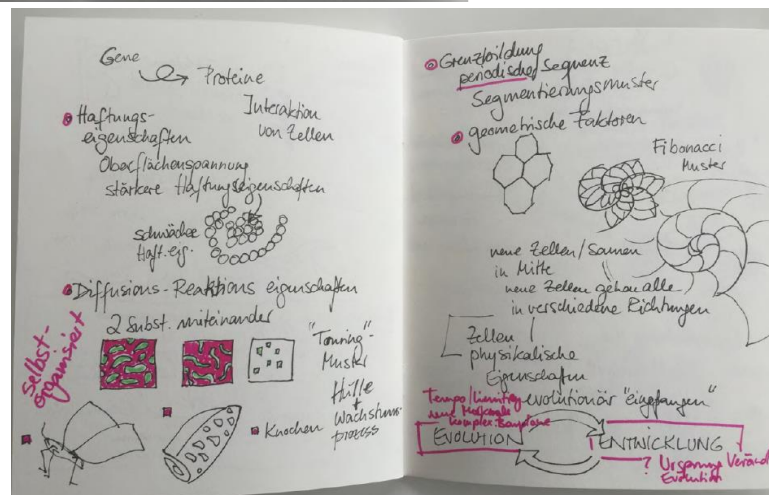 Gene
Proteine
Interaktion
von Zellen
Haftungs-
eigenschaften
Oberflächenspannung
stärkere Haftungseigenschaften
schwächere
Haft.eig.
Diffusions-Reaktions eigenschaften
2 Subst. miteinander
Selbst-
organisiert
"Touring"-
Muster
Hülle
+
Wachstums-
prozess
Knochen
Grenzbildung
periodische Sequenz
Segmentierungsmuster
geometrische Faktoren
Fibonacci
Muster
neue Zellen/Samen
in Mitte
neue Zellen gehen alle
in verschiedene Richtungen
Zellen
physikalische
Eigenschaften
evolutionär "eingefangen"
Tempo/
neue Merkmale
komplex. Baupläne
EVOLUTION
ENTWICKLUNG
? Ursprung Veränd
Evolution